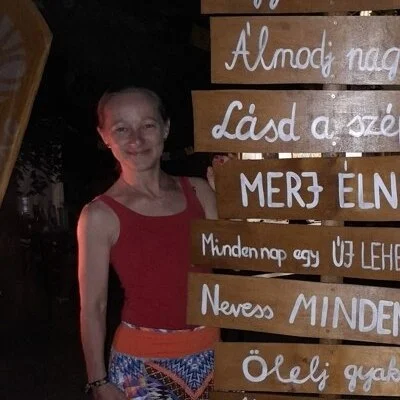 Álmodj nag
Lásd a szé
MERJ ÉLN
Minden nap egy ÚJ LEHE
Nevess MINDEN
Ölelj gyak